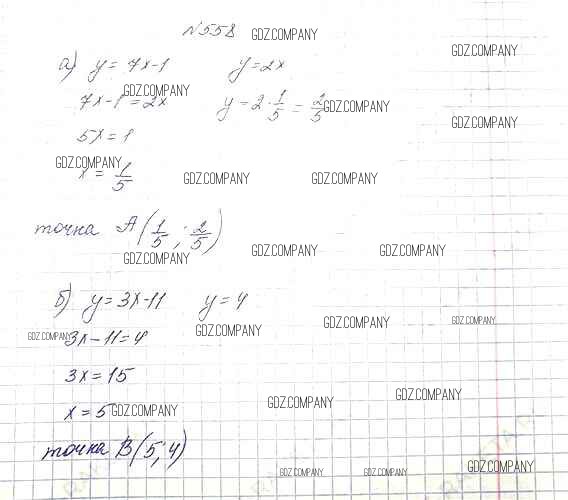 №558 GDZ.COMPANY
GDZ.COMPANY
а) y = 7x-1 y = 2x
GDZ.COMPANY
7x-1 = 2x y = 2·1/5 = 2/5 GDZ.COMPANY
5x = 1 GDZ.COMPANY
GDZ.COMPANY
x = 1/5 GDZ.COMPANY GDZ.COMPANY
точка A(1/5; 2/5)
GDZ.COMPANY GDZ.COMPANY GDZ.COMPANY
б) y = 3x-11 y = 4
GDZ.COMPANY GDZ.COMPANY GDZ.COMPANY
GDZ.COMPANY 3x-11=4
3x = 15
GDZ.COMPANY GDZ.COMPANY
x = 5 GDZ.COMPANY
точка B(5; 4)
GDZ.COMPANY GDZ.COMPANY GDZ.COMPANY